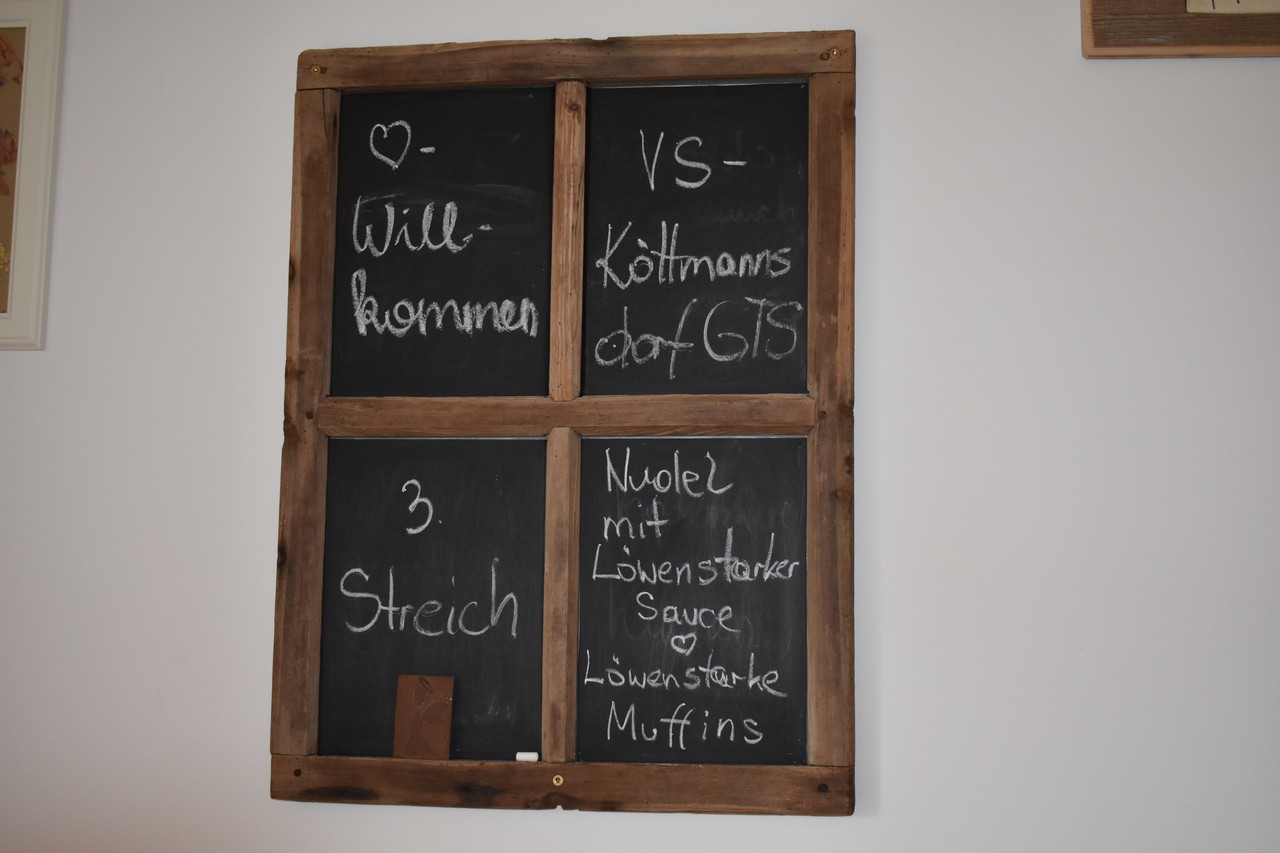 ♡-
Will-
kommen
VS-
Köttmanns
dorf GTS
3.
Streich
Nudel
mit
Löwenstarker
Sauce
♡
Löwenstarke
Muffins